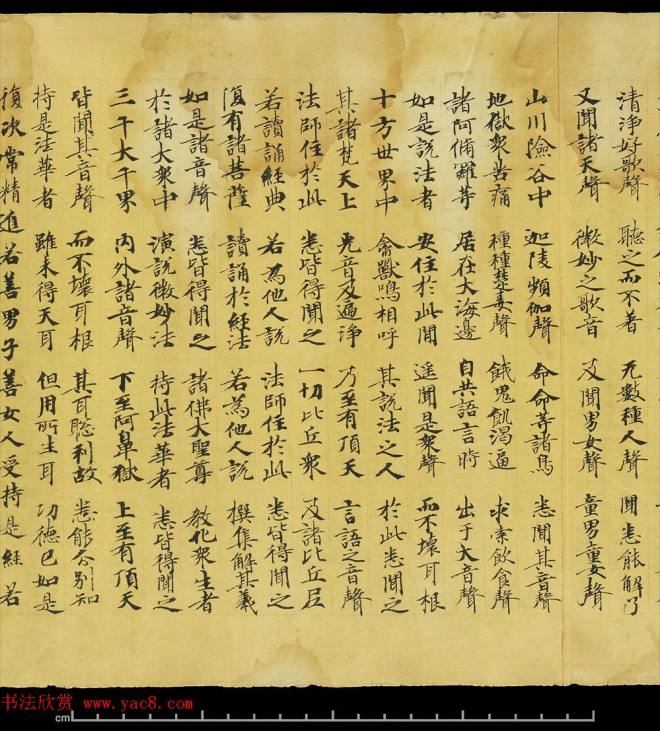 清淨好歌聲 聽之而不著 无數種人聲 聞悉能解了
又聞諸天聲 微妙之歌音 及聞男女聲 童男童女聲
山川險谷中 迦陵頻伽聲 命命等諸鳥 悉聞其音聲
地獄衆苦痛 種種楚毒聲 餓鬼飢渴逼 求索飲食聲
諸阿脩羅等 居在大海邊 自共語言時 出于大音聲
如是說法者 安住於此聞 遥聞是衆聲 而不壞耳根
十方世界中 禽獸鳴相呼 其說法之人 於此悉聞之
其諸梵天上 光音及遍淨 乃至有頂天 言語之音聲
法師住於此 悉皆得聞之 一切比丘衆 及諸比丘尼
若讀誦經典 若為他人說 法師住於此 悉皆得聞之
復有諸菩薩 讀誦於經法 若為他人說 撰集解其義
如是諸音聲 悉皆得聞之 諸佛大聖尊 教化衆生者
於諸大衆中 演說微妙法 持此法華者 悉皆得聞之
三千大千界 內外諸音聲 下至阿鼻獄 上至有頂天
皆聞其音聲 而不壞耳根 其耳聡利故 悉能分別知
持是法華者 雖未得天耳 但用所生耳 功德已如是
復次常精進若善男子善女人受持是經若
书法欣赏 www.yac8.com
cm